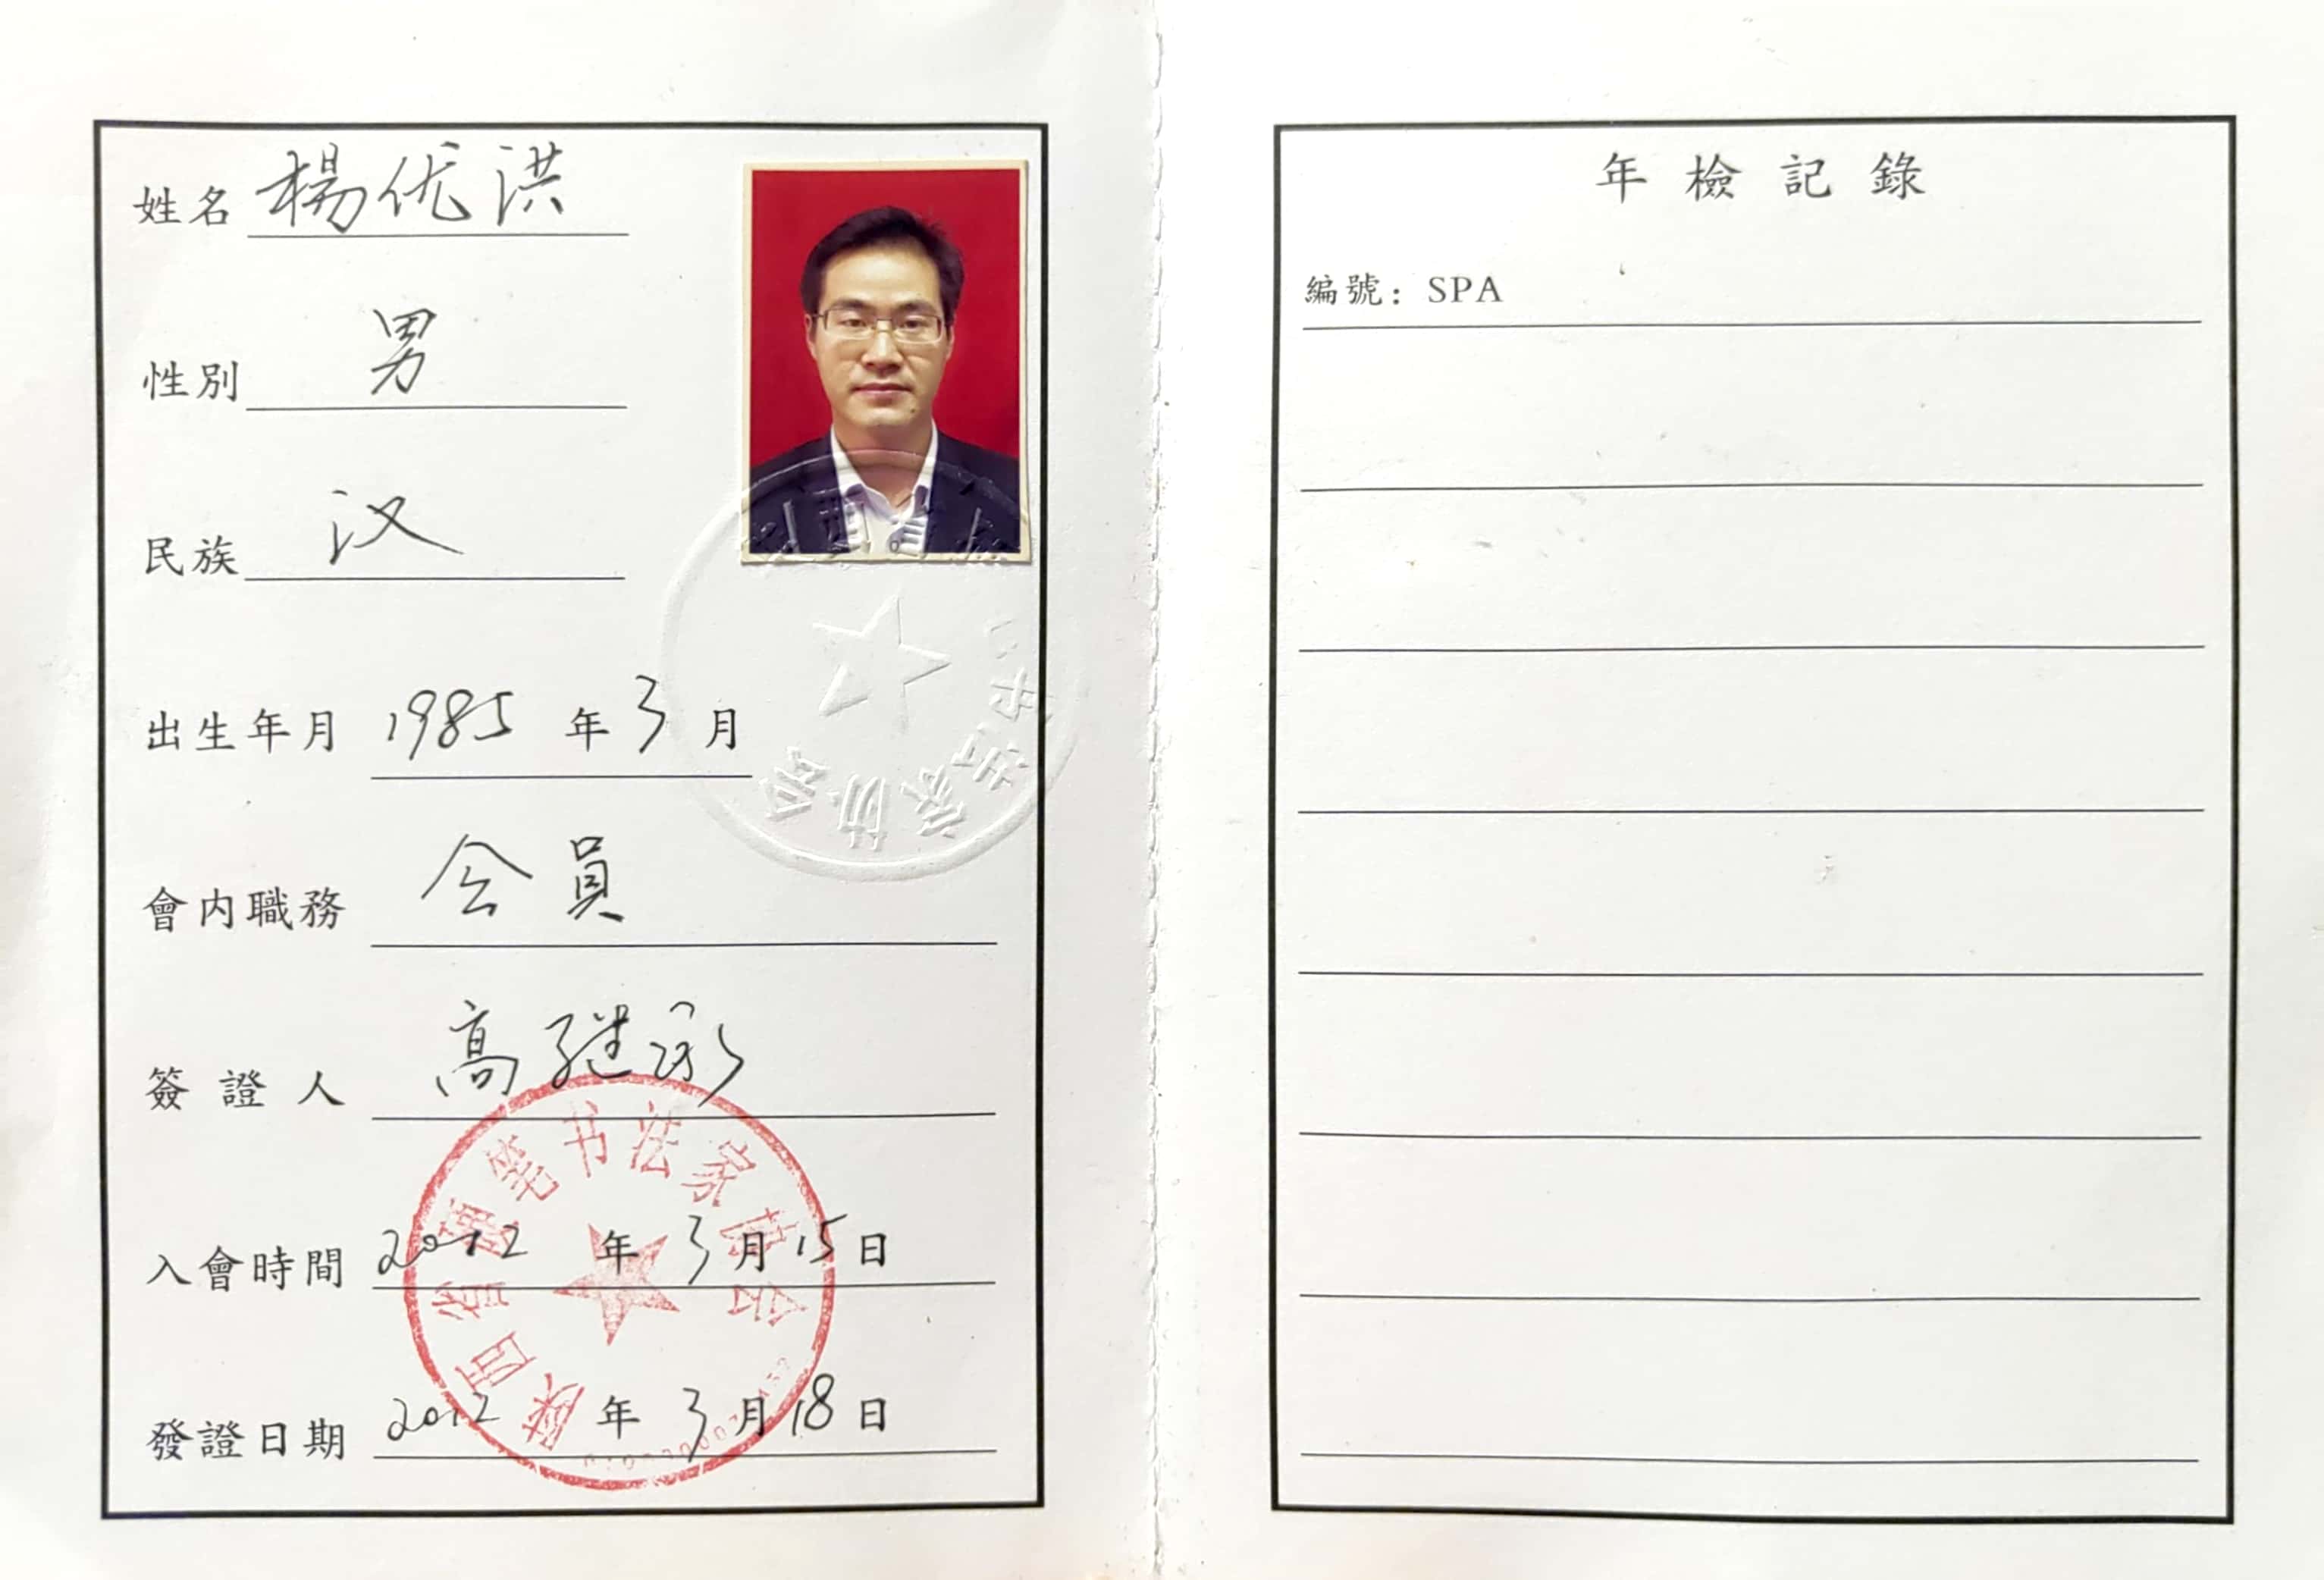 姓名 楊优洪
性別 男
民族 汉
出生年月 1985 年 3 月
會内職務 会員
簽證人 高继承
入會時間 2012 年 3 月 15 日
發證日期 2012 年 3 月 18 日
陕西省硬笔书法家协会
书法家协会
年檢記錄
編號：SPA